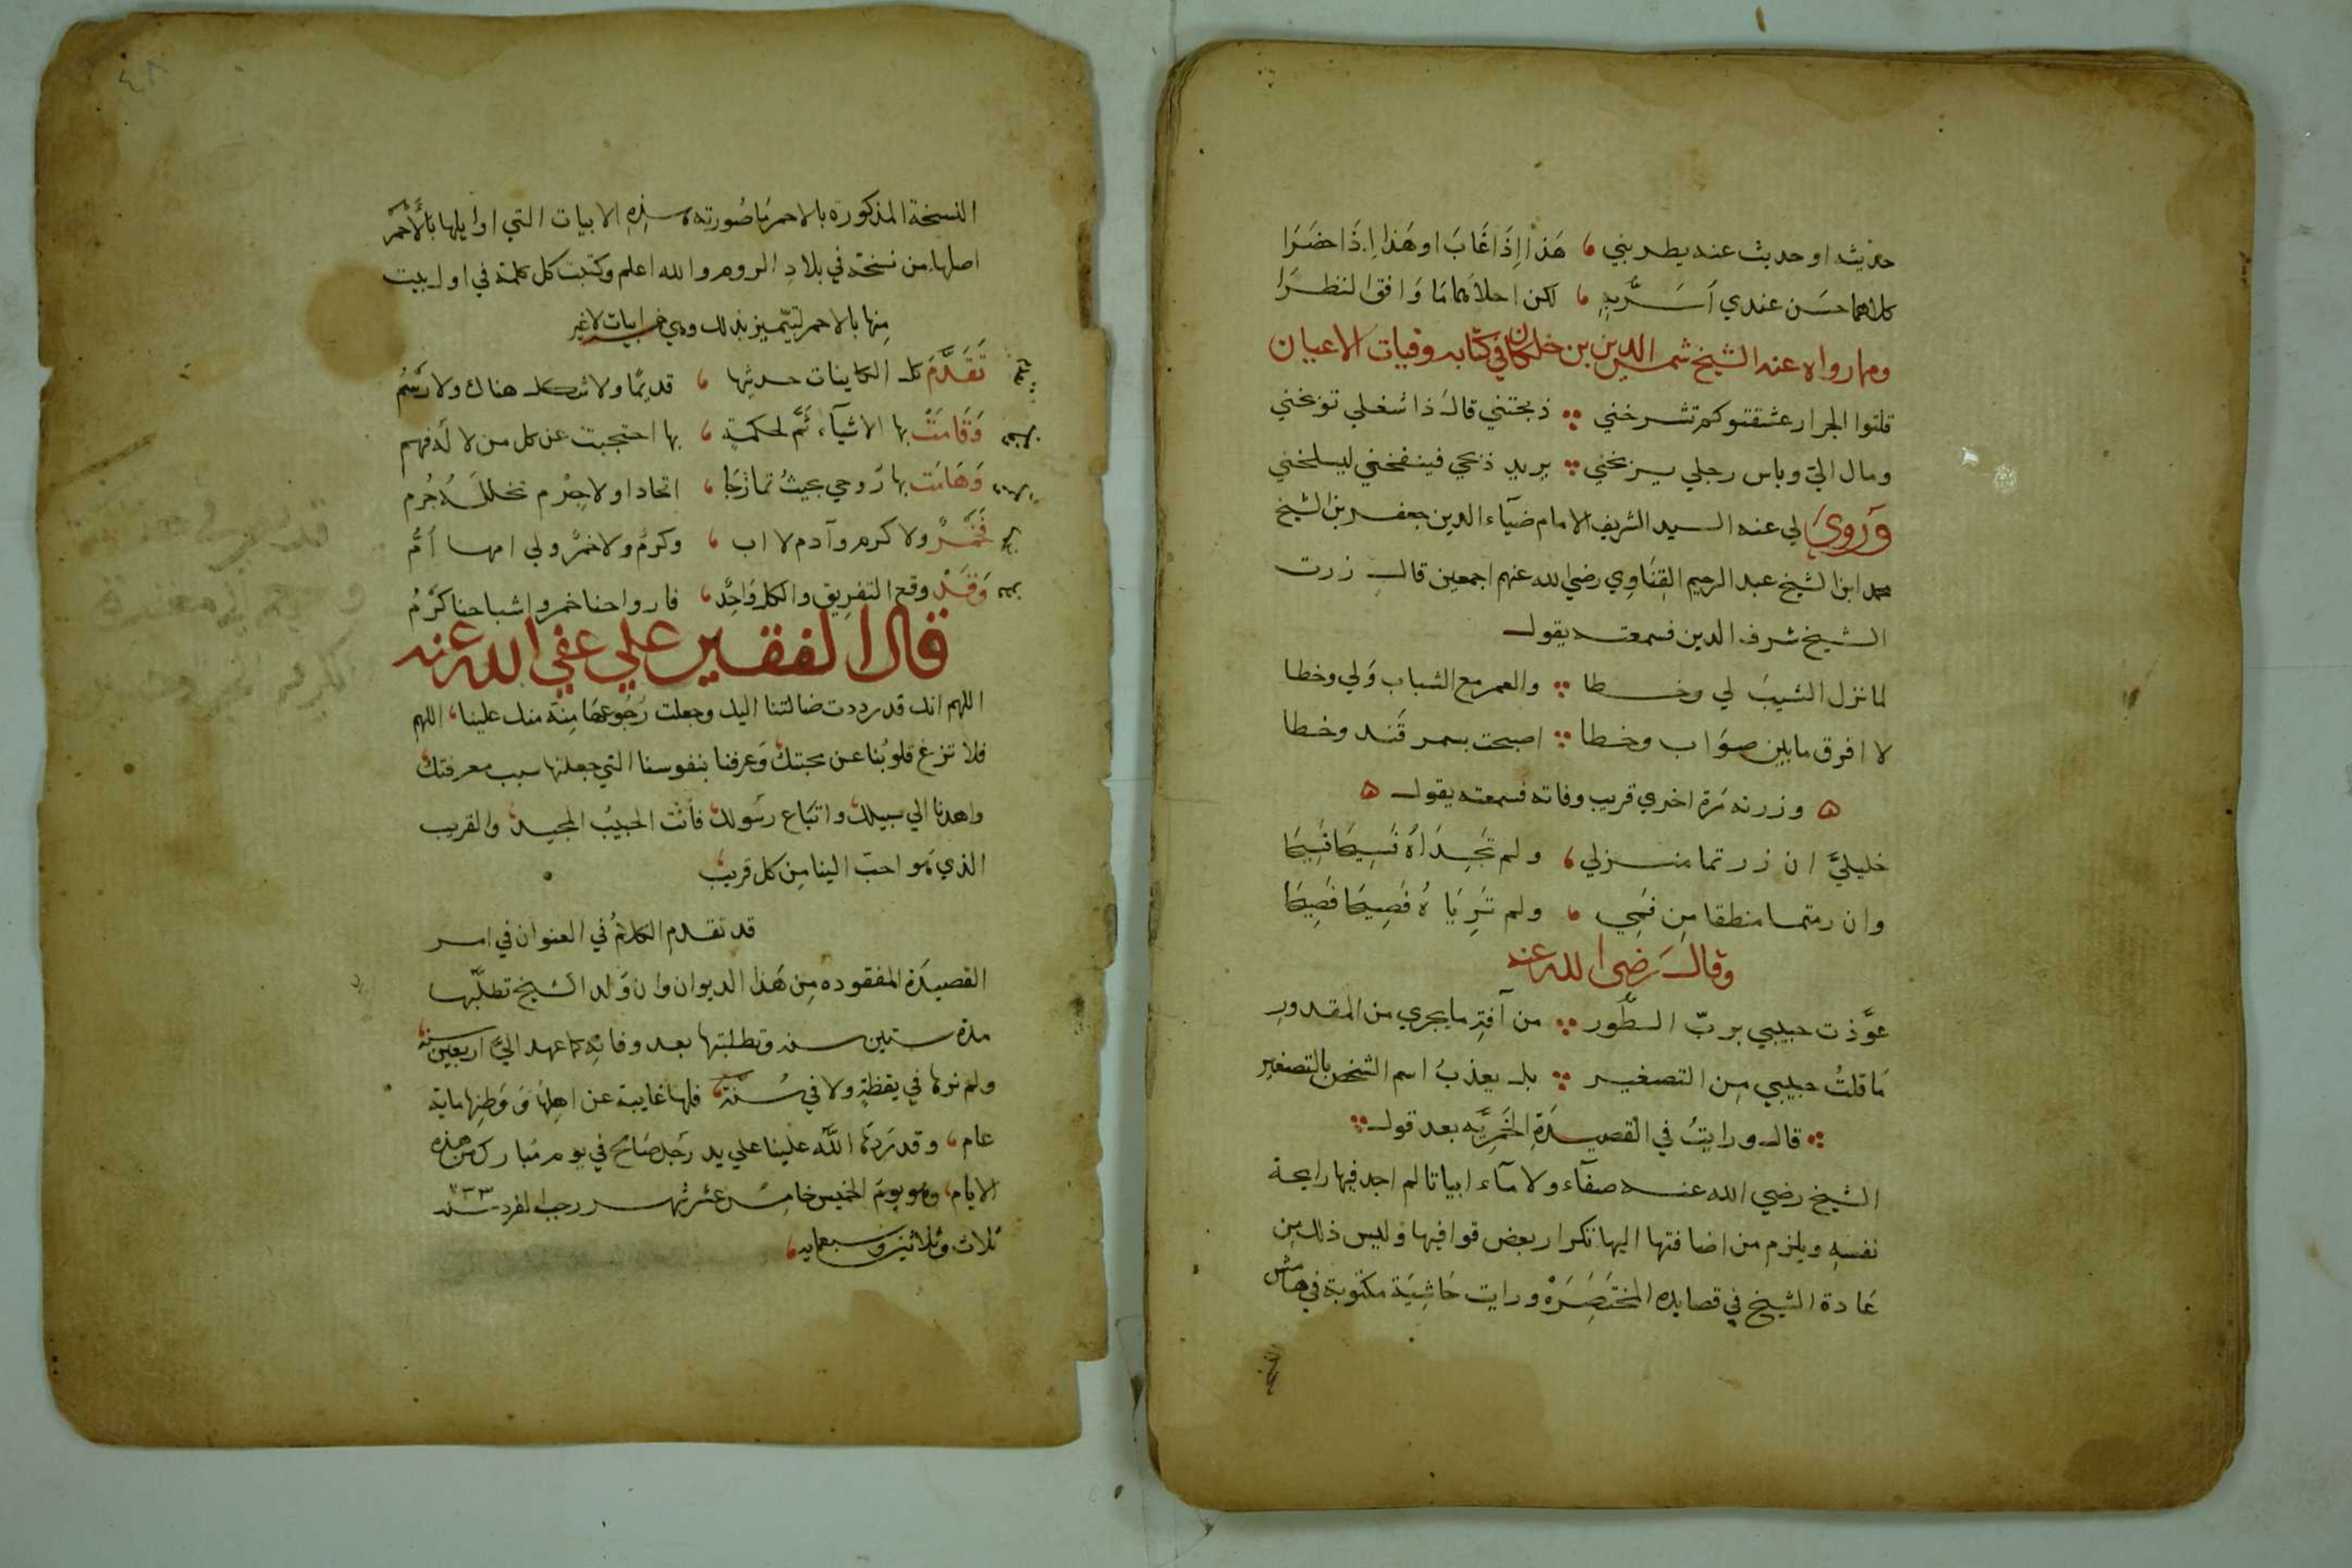 حديثه او حديث عنه يطربني ، هَذا اِذَا غَابَ او هَذا اِذَا حَضَرَا
كلاهما حسَن عندي اَسَرُّ بِهِ ، لكن احلاهما مَا وَافق النظرَا
ومما رواه عنه الشيخ شمس الدين بن خلكان في كتابه وفيات الاعيان
قلتوا لجزار عشقتو كم تشرخني ؞ ذبحتني قالَ ذا شغلي توبخني
ومال اليّ وباس رجلي يربخني ؞ يريد ذبحي فينفخني ليسلخني
وَرَويَ لي عنه السيد الشريف الامام ضيآء الدين جعفر بن الشيخ
محمد ابن الشيخ عبد الرحيم القِنَاوِي رضي الله عنهم اجمعين قال زرت
الشيخ شرف الدين فسمعته يقول
لما نزل الشيبَ لي وخطا ؞ والعمر مع الشباب وَلي وخطا
لا افرق ما بين صوَاب وخطا ؞ اصبحت بسمر قَند وخطا
ه وزرته مَرة اخري قريب وفاته فسمعته يقول ه
خليليَّ ان زرتما منزلي ، ولم تَجِدَاهُ فَسِيحًا فَسِيحَا
وان رمتما منطقا مِن فَمِي ، ولم تَرَيَاهُ فَصِيحًا فَصِيحَا
وقالَ رَضي الله عنه
عوَّذت حبيبي بربّ الطُّور ؞ من آفةِ ما يجري من المقدورِ
مَا قلتُ حبيبي مِن التصغير ؞ بل يعذبُ اسم الشخص بالتصغيرِ
؞ قال ورايتُ في القصيدَةِ الخَمرِيَّه بعد قول ؞
الشيخ رضي الله عنه صفآء ولا مآء ابياتا لم اجد فيها رايحة
نفسهِ ويلزم من اضافتها اليها تكرار بعض قوافيها وَليس ذلك مِن
عَادة الشيخ في قصايده المختَصَرَة ورايت حَاشِيَة مكتوبة في هَامش
النسخة المذكوره بالاحمر مَا صُورته هذهِ الابيات التي اوايلها بالأحمَر
اصلها من نسخة في بلادِ الروم والله اعلم وكتبت كل كلمة في اول بيت
مِنها بالاحمر لتتميز بذلك وهي خمس ابيات لاغير
تَقَدَّمَ كل الكاينات حديثها ، قديمًا ولا شكل هناك ولا رَسمُ
وَقَامَتْ بها الاشيآء ثَمَّ لحكمةٍ ، بها احتجبت عن كل من لا لَهُ فهم
وَهَامَت بها رُوحي بحيثُ تمازَجَا ، اتحادا ولا جِرم تخللَهُ جُرم
فَخَمْرٌ ولا كرم وآدم لا اب ، وكرمٌ ولا خمرٌ ولي امها اُمُّ
وَقَدْ وقع التفريق والكل وَاحِدٌ ، فارواحنا خمر واشباحنا كَرْمُ
قال الفقير علي عفي الله عنه
اللهم انك قد رددت ضالتنا اليك وجعلت رُجُوعهَا مِنَّة منك علينا ، اللهم
فلا تزغ قلوبُنا عن محبتك وَعرفنا بنفوسنا التي جعلتها سبب معرفتك
واهدنا الي سبيلك واتبَاع رسُولك فأنت الحبيبُ المجيد والقريب
الذي هُو احبّ الينا مِن كل قريب
قد تقدم الكلامُ في العنوان في امر
القصيدَة المفقوده مِن هَذا الديوان وان وَلد الشيخ تطلّبها
مدة ستين سنه وتطلبتها بعد وفاتِه كما عهد اليَّ اربعين سنة
ولم نرها في يقظةٍ ولا في سُنَة ، فلها غايبة عن اهلِهَا وَ وَطنِها ماية
عام ، وقد رَدهَا اللَّه علينا علي يد رَجل صَالح في يوم مُبارك من هذه
الايام ، وهو يومَ الخميس خامس عشر شهر رجب الفرد سنه ٧٣٣
ثلاث وثلاثين وَسبعمايه ،